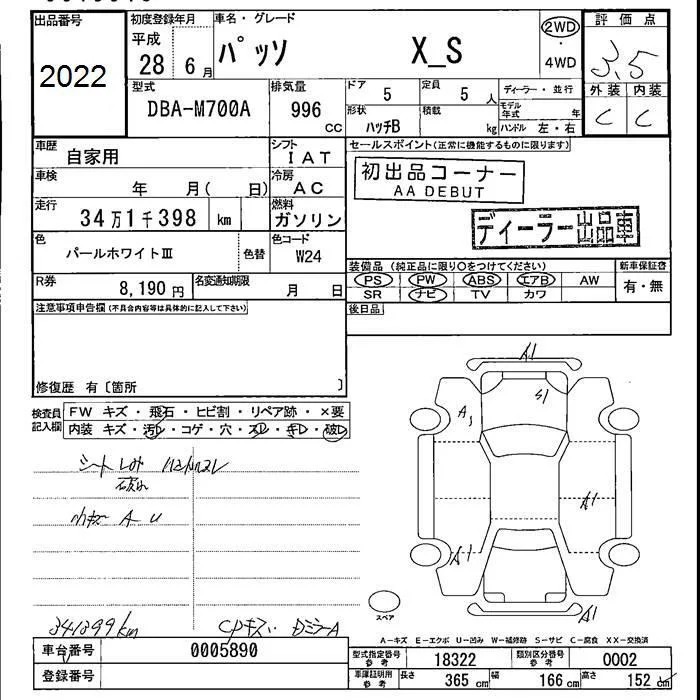 出品番号
2022
初度登録年月
平成
28 6月
車名・グレード
パッソ X_S
2WD
・
4WD
評価点
3.5
外装 内装
C C
型式
DBA-M700A
排気量
996
CC
ドア
5
定員
5 人
ディーラー・並行
モデル年式 年
形状
ハッチB
積載
kg
ハンドル 左・右
車歴
自家用
シフト
IAT
セールスポイント(正常に機能するものに限ります)
車検
年 月( 日)
冷房
AC
初出品コーナー
AA DEBUT
走行
34万1千398 km
燃料
ガソリン
ディーラー出品車
色
パールホワイトⅢ
色替
色コード
W24
装備品 (純正品に限り○をつけてください)
新車保証書
PS PW ABS エアB AW
有・無
SR ナビ TV カワ
R券
8,190円
名変通知期限
月 日
後日品
注意事項申告欄(不具合内容等は具体的に記入して下さい)
修復歴 有〔箇所 〕
検査員
記入欄
FW キズ・飛石・ヒビ割・リペア跡・×要
内装 キズ・汚レ・コゲ・穴・スレ・キレ・破レ
シート
小キズ A U
341399km
A1
S1
A1
A1
A1
スペア
A1
A-キズ E-エクボ U-凹み W-補修跡 S-サビ C-腐食 XX-交換済
車台番号
0005890
登録番号
型式指定番号
参考
18322
類別区分番号
参考
0002
車庫証明用
参考
長さ 365cm 幅 166cm 高さ 152cm